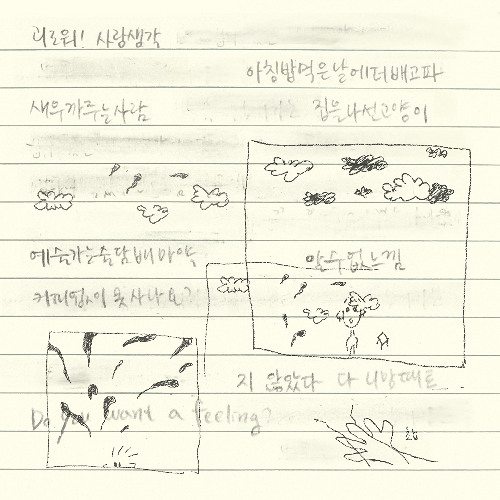 괴로워! 사랑생각
아침밥먹은날에더배고파
새우까주는사람
집을나선고양이
예술가는술담배마약
알수없는느낌
커피없이 못사나요?
지 않았다 다 니맘때로
Do you want a feeling?